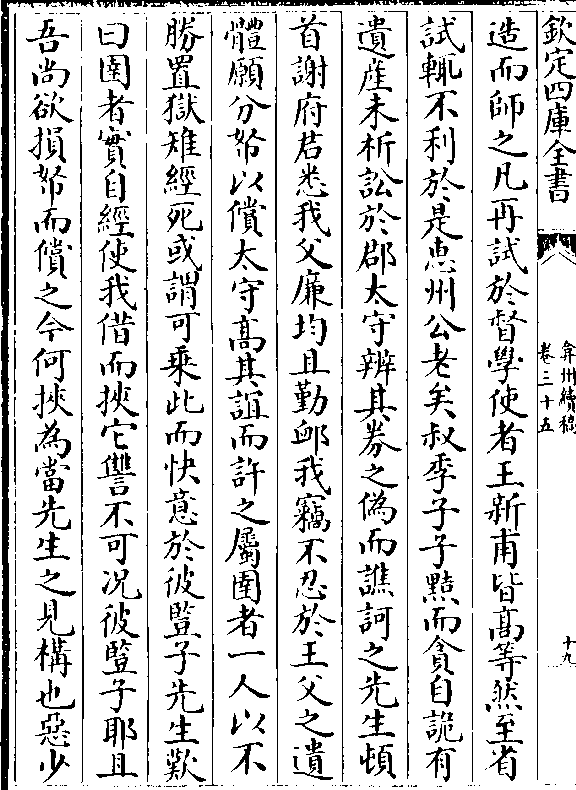 欽定四庫全書
弇州續稿
卷三十五
十九
造而師之凡再試於督學使者王新甫皆髙等然至省
試輒不利於是惠州公老矣叔季子子黠而貪自詭有
遺産未析訟於郡太守辨其券之偽而譙訶之先生頓
首謝府君悉我父廉均且勤邺我竊不忍於王父之遺
體願分帑以償太守髙其誼而許之屬圉者一人以不
勝置獄雉經死或謂可乘此而快意於彼豎子先生歎
曰圉者實自經使我借而挾它讐不可况彼豎子耶且
吾尚欲損帑而償之今何挾為當先生之見構也惡少